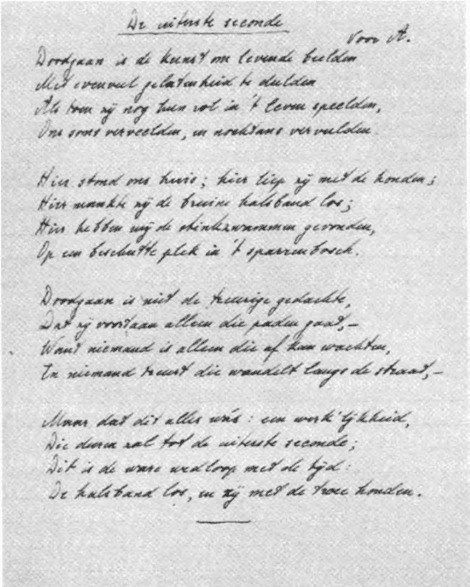 De uiterste seconde
Voor A.
Doodgaan is de kunst om levende beelden
Met evenveel gelatenheid te dulden
Als toen zij nog hun rol in 't leven speelden,
Ons soms verveelden, en nochtans vervulden.
Hier stond ons huis; hier liep zij met de honden;
Hier maakte zij de bruine halsband los;
Hier hebben wij de stinkzwammen gevonden,
Op een beschutte plek in 't sparrenbosch.
Doodgaan is niet de treurige gedachte,
Dat zij voortaan alleen die paden gaat,—
Want niemand is alleen die af kan wachten,
En niemand treurt die wandelt langs de straat,—
Maar dat dit alles wás: een werk'lijkheid,
Die duren zal tot de uiterste seconde;
Dit is de ware wedloop met de tijd:
De halsband los, en zij met de twee honden.